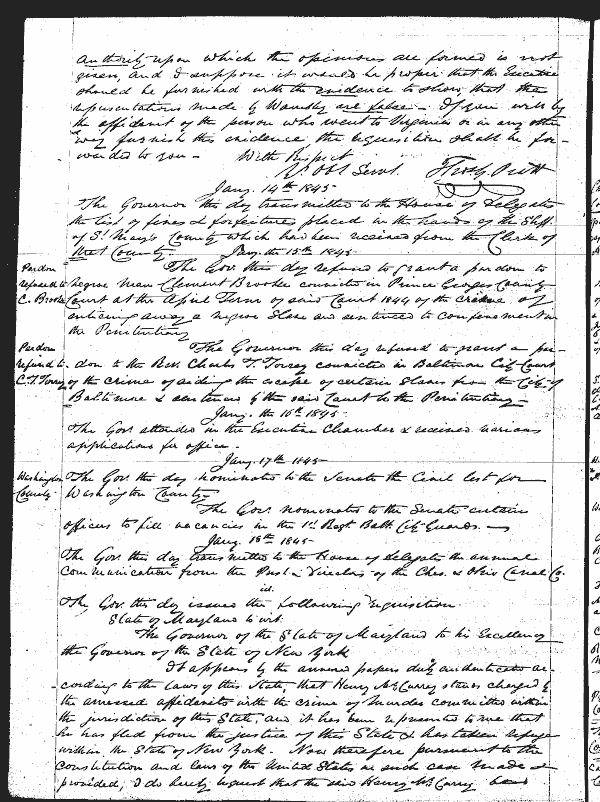 authority upon which the opinions are formed is not
given, and I suppose it would be proper that the Executive
should be furnished with the evidence to show that the
representations made by Wamsley are false. If you will by
the affidavit of the person who went to Virginia or in any other
way furnish this evidence the requisition shall be for-
warded to you - With Respect
Yr Obt Servt. Thos. G. Pratt
Jany. 14th 1845
The Governor this day transmitted to the House of Delegates
the list of fines & forfeitures placed in the hands of the Shff.
of St. Mary's County which have been received from the Clerk of
that County. Jany. the 15th 1845
Pardon refused to C. Brooke
The Gov. this day refused to grant a pardon to
Negro man Clement Brooke convicted in Prince Georges County
Court at the April Term of said Court 1844 of the crime of
enticing away a negro slave and sentenced to confinement in
the Penitentiary
Pardon refused to C. T. Torrey
The Governor this day refused to grant a par-
don to the Rev. Charles T. Torrey convicted in Baltimore City Court
of the crime of aiding the escape of certain slaves from the City of
Baltimore & sentenced by the said Court to the Penitentiary -
Jany. the 16th 1845
The Gov. attended in the Executive Chamber & received various
applications for office.
Jany. 17th 1845
Washington County
The Gov. this day nominated to the Senate the Civil list for
Washington County
The Gov. nominates to the Senate certain
officers to fill vacancies in the 1st Regt. Balt. City Guards.
Jany. 18th 1845
The Gov. this day transmitted to the House of Delegates the annual
communication from the Prest. & Directors of the Ches. & Ohio Canal Co.
The Gov. this day issued the following requisition
State of Maryland to wit:
The Governor of the State of Maryland to his Excellency
the Governor of the State of New York
It appears by the annexed papers duly authenticated ac-
cording to the laws of this State, that Henry McCurry stands charged by
the annexed affidavits with the crime of Murder committed within
the jurisdiction of this State, and it has been represented to me that
he has fled from the justice of this State & has taken refuge
within the State of New York. Now therefore pursuant to the
constitution and laws of the United States in such case made &
provided, I do hereby request that the said Henry McCurry be